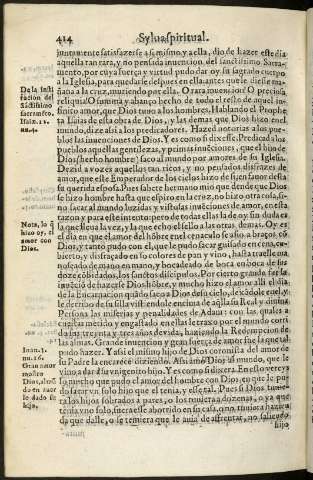 414 Sylua spiritual.
juntamente satisfazerse a si mismo y a ella, dio de hazer este dia
aquella tan rara, y no pensada inuencion del sanctissimo Sacra-
mento, por cuya fuerça y virtud pudo dar oy su sagrado cuerpo
a la Iglesia, para quedarse despues en ella, antes que le diesse ma-
ñana a la cruz, muriendo por ella. O rara inuencion! O preciosa
reliquia! O summa y abono hecho de todo el resto de aquel in-
finito amor, que Dios tuuo a los hombres. Hablando el Propheta
Isaias de esta obra de Dios, y las demas que Dios hizo en el
mundo, dize assi a los predicadores. Hazed notorias a los pue-
blos las inuenciones de Dios. Y es como si dixesse. Predicad a los
pueblos aquellas gentilezas, y primas inuẽciones, que el hijo de
Dios (hecho hombre) saco al mundo por amores de su Iglesia.
Dezid a vozes aquellos tan ricos, y no pensados disfrazes de
amor, que este Emperador de los cielos hizo de su
querida esposa. Pues sabete hermano mio que dende que Dios
se hizo hombre hasta que espiro en la cruz, no hizo otra cosa, si-
no sacar al mundo luzidas y vistosas inuẽciones de amor,
y para este intento: pero de todas ellas la de oy sin duda es
la que lleua la vez, y la que echo el sello a las otras demas. Oy es
el dia en que el amor del hõbre en el cenaculo se assio a braços cõ
Dios, y tanto pudo con el, que le pudo sacar guisado en cena, cu-
bierto, y disfraçado en so colores de pan y vino, hasta traelle ma-
noseado de mano en mano, y bocadeado de boca en boca de sus
doze cõbidados, los sanctos discipulos. Por cierto grande fue la
inuẽciõ de hazerse Dios hõbre, y mucho hizo el amor el dia
de la Encarnacion quãdo saco a Dios de su cielo,
le derribo de su silla vistiendole encima de aq̃lla su Real y diuina
Persona las miserias y penalidades de Adam: con las quales a
cuestas metido y engastado en ellas le traxo por el mundo corri-
do sus treynta y tres años de vida, haziendo la Redempcion de
las almas. Grande inuencion y gran fuerça de amor fue la que tal
pudo hazer. Y assi el mismo hijo de Dios coronista del amor de
su Padre la encarece diziendo. Assi amo Dios al mundo, que le
vino a dar su vnigenito hijo. Y es como si dixera. En esto vereys
lo mucho que pudo el amor del hombre con Dios, en que le pu-
do sacar vn solo hijo que el tenia, y esse tal. Pues si Dios tuuie-
ra los hijos sobrados a pares, o los tuuiera a dozenas, o ya que
tenia vno solo, fuera esse abortido en su casa,
da que dalle, o se temiera que le auia de afrentar, no saliendo
hijo
De la insti
tucion del
Sãctissimo
sacramẽto.
Isaiæ. 12.
nu. 4.
Nota, lo q̃
hizo oy, el
amor con
Dios.
Ioan. 3.
nu. 16.
Gran amor
mostro
Dios, al mũ
do en auer
le dado su
hijo.